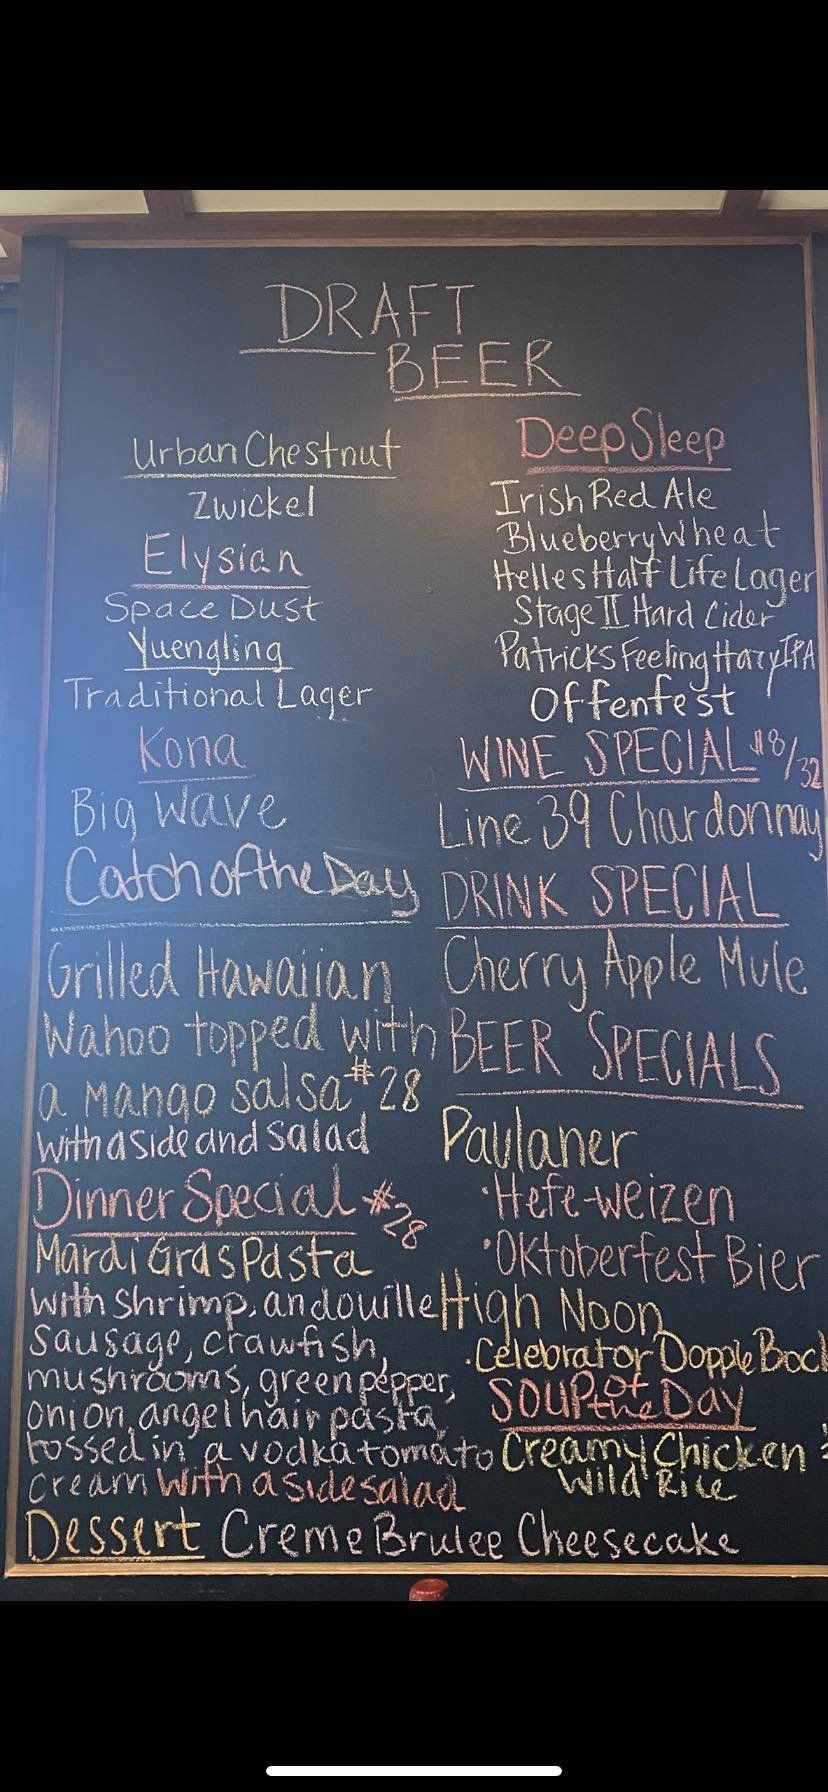 DRAFT
BEER
Urban Chestnut
Zwickel
Elysian
Space Dust
Yuengling
Traditional Lager
Kona
Big Wave
Catch of the Day
Grilled Hawaiian
Wahoo topped with
a Mango salsa $28
with a side and salad
Dinner Special $28
Mardi Gras Pasta
with shrimp, andouille
sausage, crawfish,
mushrooms, green pepper,
onion, angel hair pasta,
tossed in a vodka tomato
cream with a side salad
Deep Sleep
Irish Red Ale
Blueberry Wheat
Helles Half Life Lager
Stage II Hard Cider
Patricks Feeling Hazy IPA
Offenfest
WINE SPECIAL $8/32
Line 39 Chardonnay
DRINK SPECIAL
Cherry Apple Mule
BEER SPECIALS
Paulaner
·Hefe-weizen
·Oktoberfest Bier
High Noon
·Celebrator Dopple Bock
SOUP of the Day
Creamy Chicken &
Wild Rice
Dessert Creme Brulee Cheesecake